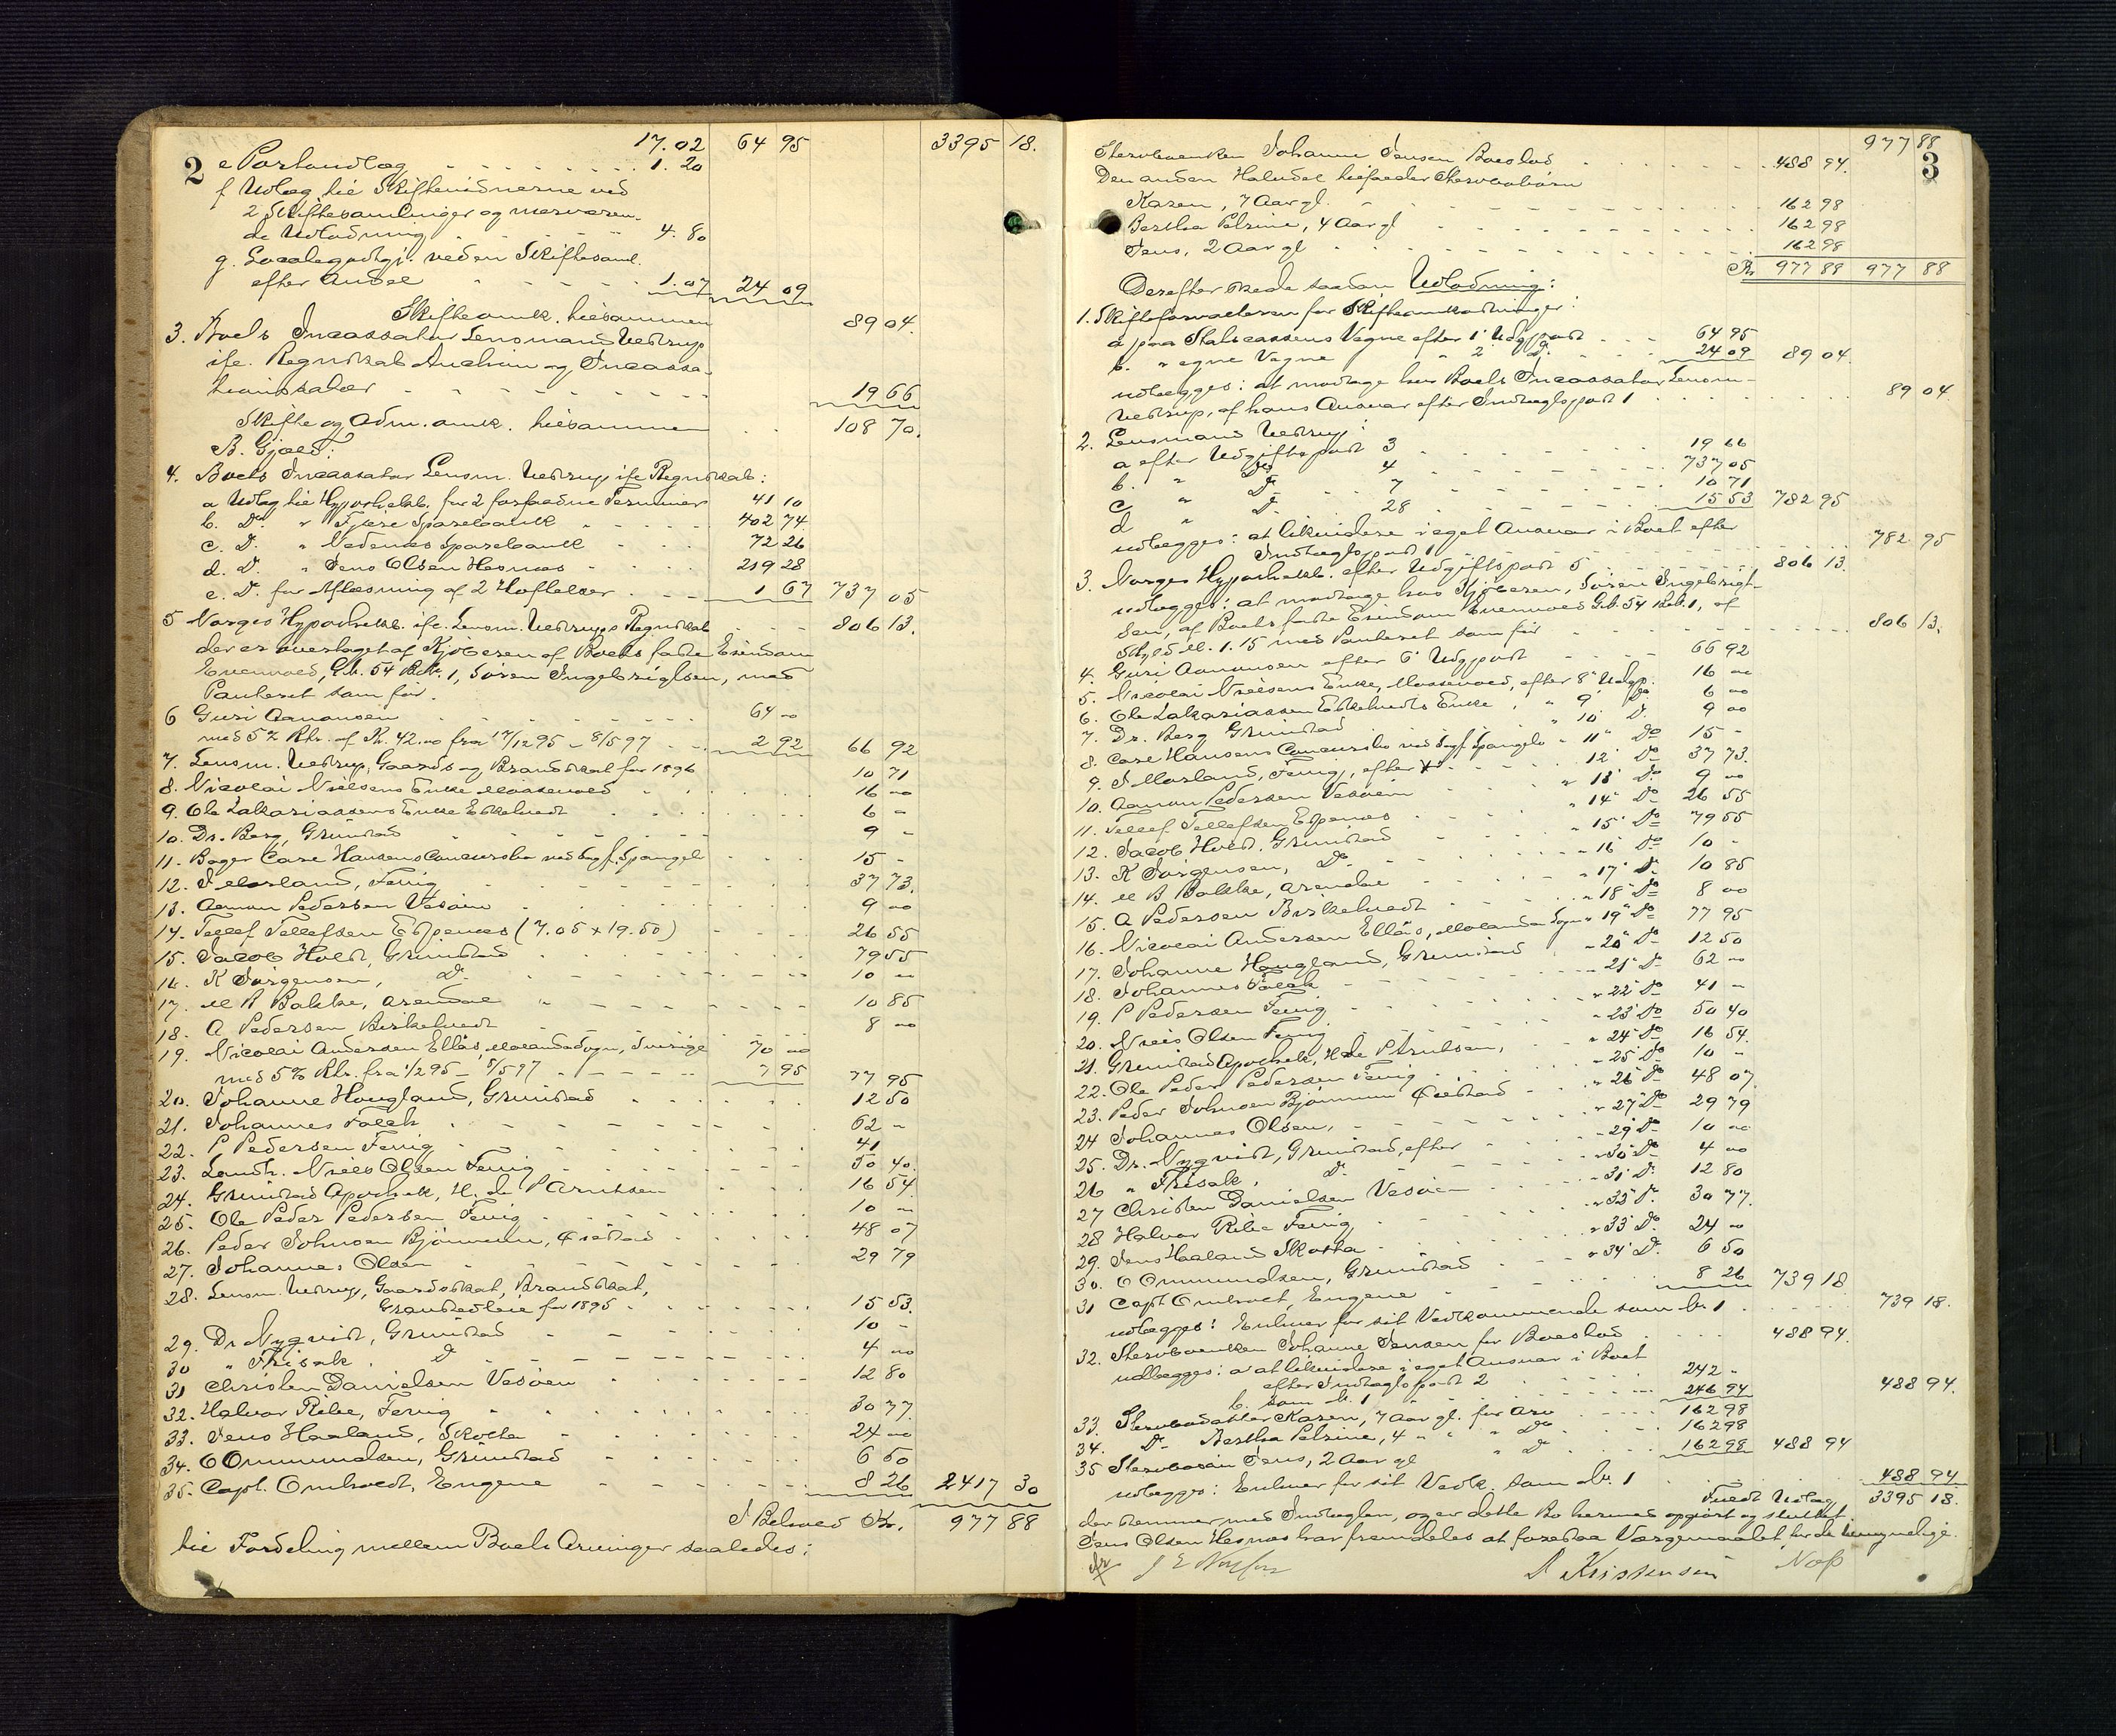 2
17.02 64 95 3395 18.
e Portoudlæg 1. 20
f Udlæg til Skiftevidnerne ved
2 Skiftesamlinger og nærværen-
de Udlodning 4. 80
g. Localegodtgj. ved en Skiftesaml.
efter Andel 1.07 24 09
Skifteomk. tilsammen 89 04.
3. Boets Incassator Lensmand Ueltrup
ifl. Regnskab Auctions og Incassa-
tionssalær 19 66
Skifte og Adm. omk. tilsammen 108 70.
B. Gjæld:
4. Boets Incassator Lensm. Ueltrup ifl Regnskab:
a Udlæg til Hypothekb. for 2 forfaldne Terminer 41 10
b. Do. " Fjære Sparebank 402 74.
c. D. " Nedenæs Sparebank 72 26
d. D. " Jens Olsen Hesnæs 219 28
e. D. for Aflæsning af 2 Heftelser 1 67 737 05
5 Norges Hypothekb. ifl. Lensm. Ueltrups Regnskab 806 13.
der er overtaget af Kjøberen af Boets faste Eiendom
G.b. 54 Bk. 1, Søren Ingebrigtsen, med
Panteret som før.
6 Guri Aanonsen 64 "
med 5% Rtr. af Kr. 42.00 fra 17/12 95 - 8/5 97 2 92 66 92
7. Lensm. Ueltrup, Gaards og Brandskat for 1896 10 71
8. Nicolai Nielsens Enke 16 00
9. Ole Zakariassens Enke 6 "
10. Dr. Berg, Grimstad 9 "
11. Bager Carl Hansens Concursbo ved Sagf. Spangelo 15 -
12. I Morland, Fevig 37 73.
13. Aanon Pedersen Vesøen 9 00
14. Tellef Tellefsen Espenes (7.05 + 19.50) 26 55
15. Jacob Holst, Grimstad 79 55
16. K Jørgensen, Do. 10 00
17. M B Bakke, Arendal 10 85
18. A Pedersen Birkelvedt 8 00
19. Nicolai Andersen Ellås, Sverige 70 00
med 5% Rtr. fra 1/2 95 - 8/5 97 7 95 77 95
20. Johanne Hougland, Grimstad 12 50
21. Johannes Falck 62 -
22. P Pedersen Fevig 41
23. Landh. Niels Olsen Fevig 50 40.
24. Grimstad Apothek, H. de P Arntsen 16 54.
25. Ole Peder Pedersen Fevig 10 -
26. Peder Johnsen, Øiestad 48 07
27. Johannes Olsen 29 79
28. Lensm. Ueltrup, Gaardsskat, Brandskat,
for 1895 15 53.
29. Dr Nyqvist, Grimstad 10 -
30 " Frisak. Do 4 00
31 Christen Danielsen Vesøen 12 80
32. Halvor Ribe, Fevig 30 77
33. Jens Haaland, Skotta 24 00
34. O Ommundsen, Grimstad 6 50
35. Capt. Omholt, Engene 8 26 2417 30
I Behold Kr. 977 88
til Fordeling mellem Boets Arvinger saaledes:
3
977 88
Stervboenken Johanne Jensen Boeslod 488 94.
Den anden Halvdel tilfalder Stervbobørn
Karen, 7 Aar gl. 162 98
Bertha Petrine, 4 Aar gl 162 98
Jens, 2 Aar gl 162 98
Kr. 977 88 977 88
Derefter skede saadan Udlodning:
1. Skifteforvalteren for Skifteomkostninger
a paa Statscassens Vegne efter 1' Udgpost 64 95
b. " egne Vegne " 2' D. 24 09 89 04.
udlægges: at modtage hos Boets Incassator Lensm-
Ueltrup, af hans Ansvar efter Indtægtspost 1 89 04
2. Lensmand Ueltrup:
a efter Udgiftspost 3 19 66
b. " Do 4 737 05
c " Do. 7 10 71
d " D. 28 15 53 782 95
udlægges: at likvidere i eget Ansvar i Boet efter
Indtægtspost 1 782 95
3. Norges Hypothekb. efter Udgiftspost 5 806 13.
udlægges: at modtage hos Kjøberen, Søren Ingebrigt-
sen, af Boets faste Eiendom G.b. 54 Bk. 1, af
Skyld M. 1.15 med Panteret som før 806 13.
4. Guri Aanonsen efter 6' Udgpost 66 92
5. Nicolai Nielsens Enke, efter 8" Udgp. 16 00
6. Ole Zakariassens Enke, " 9' Do. 6 00
7. Dr. Berg Grimstad " 10' D. 9 00
8. Carl Hansens Concursbo ved Sagf. Spangelo " 11" Do 15 -
9. I Morland, Fevig, efter 12' Do 37 73.
10. Aanon Pedersen Vesøen " 13' Do 9 00
11. Tellef Tellefsen Espenes " 14' Do 26 55
12. Jacob Holst, Grimstad " 15' Do 79 55
13. K Jørgensen, Do " 16' Do 10 -
14. M B Bakke, Arendal " 17' D. 10 85
15. A Pedersen Birkelvedt " 18' Do 8 00
16. Nicolai Andersen Ellås, " 19' Do 77 95
17. Johanne Hougland, Grimstad " 20' Do 12 50
18. Johannes Falck " 21' D 62 00
19. P Pedersen Fevig " 22' Do 41 -
20. Niels Olsen Fevig " 23' Do 50 40
21. Grimstad Apothek, H de P Arntsen, " 24' Do 16 54.
22. Ole Peder Pedersen Fevig " 25' Do 10 -
23. Peder Johnsen Øiestad " 26' Do 48 07.
24 Johannes Olsen, " 27' Do 29 79
25. Dr. Nyqvist, Grimstad, efter " 29' Do 10 00
26 " Frisak, D. " 30' Do 4 00
27 Christen Danielsen Vesøen " 31' D. 12 80
28 Halvor Ribe Fevig " 32' D. 30 77.
29. Jens Haaland Skotta " 33' Do. 24 00
30. O Ommundsen, Grimstad " 34' D. 6 50
31 Capt Omholt, Engene 8 26 739 18
udlægges: Enhver for sit Vedkommende som Nr. 1 739 18.
32. Stervboenken Johanne Jensen for Boeslod 488 94.
udlægges: a at likvidere i eget Ansvar i Boet
efter Indtægtspost 2 242 -
b. som Nr. 1 246 94 488 94.
33. Stervbodatter Karen, 7 Aar gl. for Arv 162 98
34. Do Bertha Petrine, 4 " " " Do 162 98
35 Stervbosøn Jens, 2 Aar gl " D 162 98 488 94
udlægges: Enhver for sit Vedk. som Nr. 1 488 94
Fuldt Udlæg 3395 18.
der stemmer med Indtægten, og er dette Bo hermed opgjort og sluttet.
Jens Olsen Hesnæs har fremdeles at forestaa Værgemaalet for de umyndige.
Kristensen